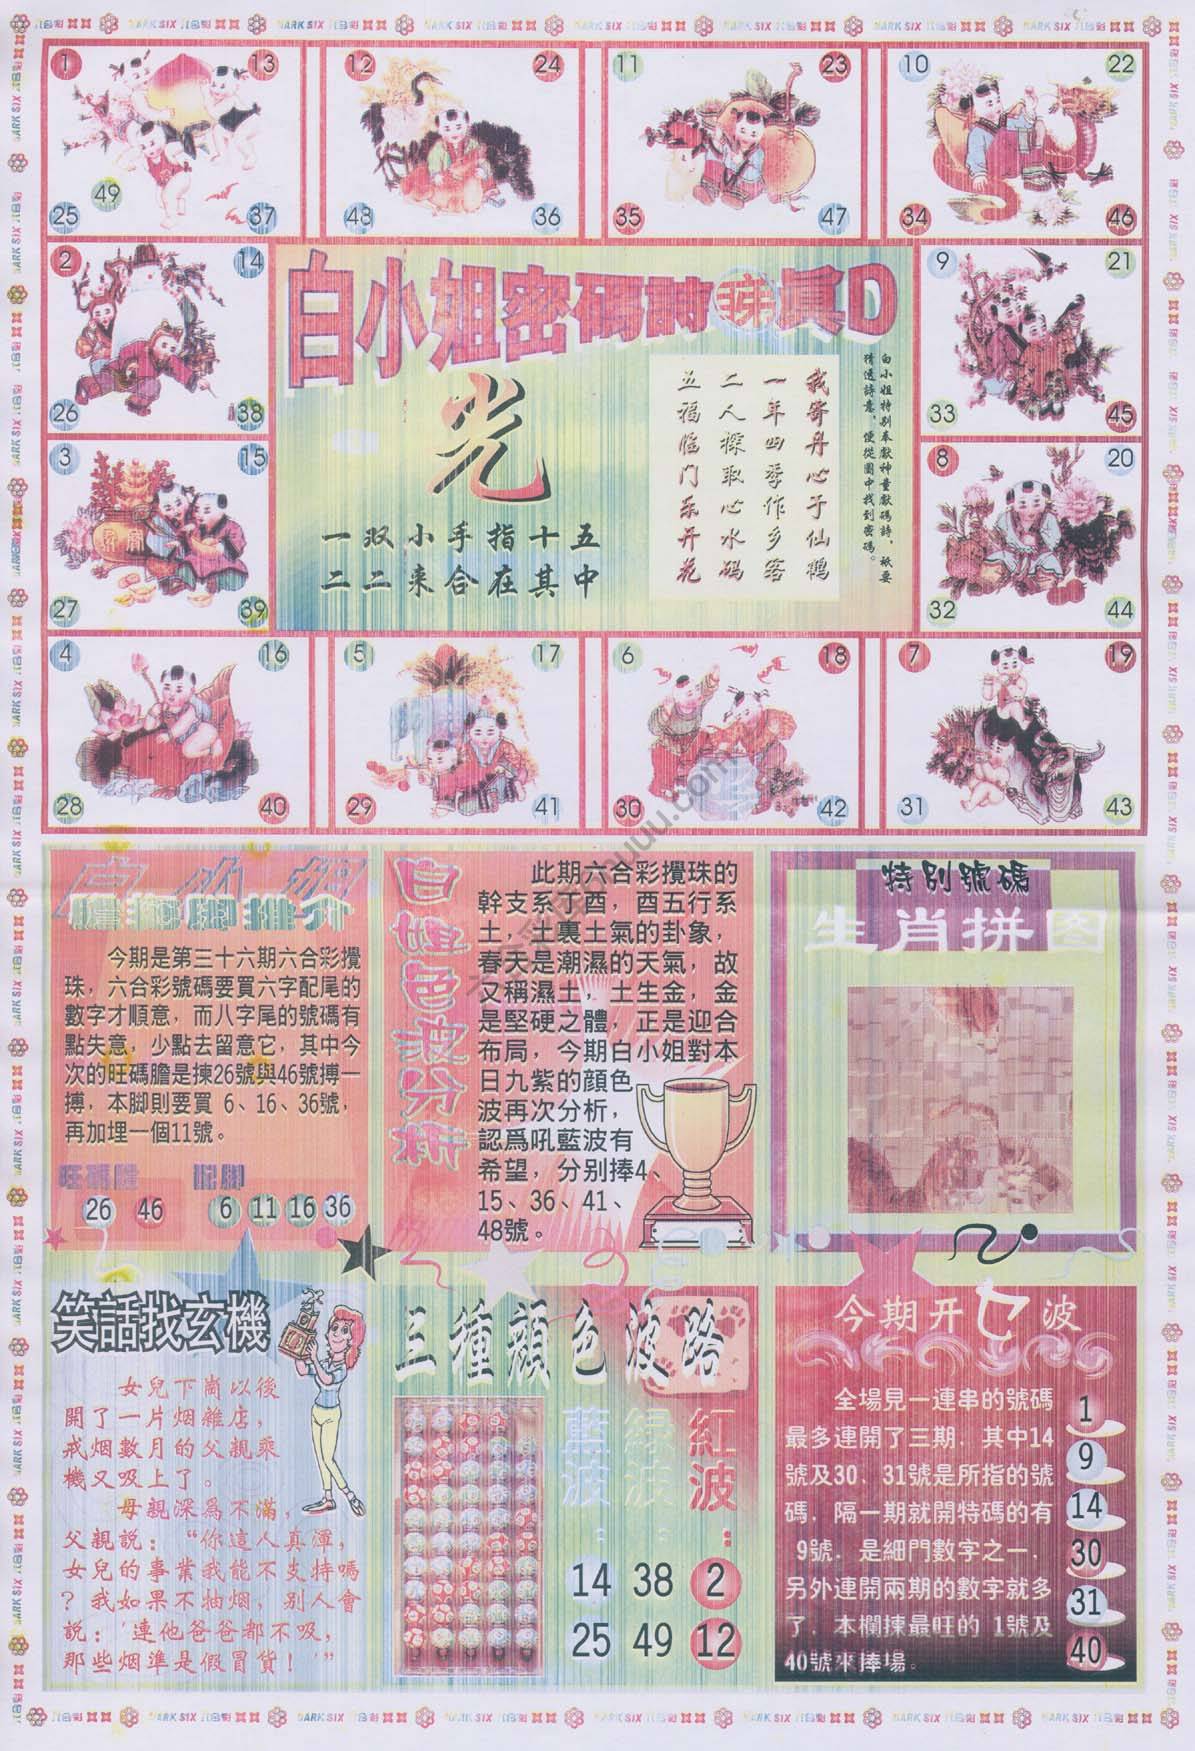 1 13
49
25 37
12 24
48 36
11 23
35 47
10 22
34 46
2 14
26 38
白小姐密碼詩
眞D
光
一双小手指十五
二二来合在其中
我寄丹心于仙鹤
一年四季作乡客
二人探取心水码
五福临门乐开花
白小姐特别奉獻神童獻碼詩，祇要
猜透詩意，便從圖中找到密碼。
9 21
33 45
3 15
27 39
8 20
32 44
4 16
28 40
5 17
29 41
6 18
30 42
7 19
31 43
今期是第三十六期六合彩攪
珠，六合彩號碼要買六字配尾的
數字才順意，而八字尾的號碼有
點失意，少點去留意它，其中今
次的旺碼膽是揀26號與46號搏一
搏，本脚則要買 6、16、36號，
再加埋一個11號。
旺碼膽 配脚
26 46 6 11 16 36
白姐色波分析
此期六合彩攪珠的
幹支系丁酉，酉五行系
土，土裏土氣的卦象，
春天是潮濕的天氣，故
又稱濕土，土生金，金
是堅硬之體，正是迎合
布局，今期白小姐對本
日九紫的顔色
波再次分析，
認爲吼藍波有
希望，分别捧4、
15、36、41、
48號。
特别號碼
生肖拼图
笑話找玄機
女兒下崗以後
開了一片烟雜店，
戒烟數月的父親乘
機又吸上了。
母親深爲不滿，
父親説：“你這人真渾，
女兒的事業我能不支持嗎
？我如果不抽烟，别人會
説：'連他爸爸都不吸，
那些烟準是假冒貨！'”
三種顔色波路
藍波： 緑波： 紅波：
14 38 2
25 49 12
今期开七波
全場見一連串的號碼
最多連開了三期．其中14
號及30．31號是所指的號
碼．隔一期就開特碼的有
9號．是細門數字之一．
另外連開兩期的數字就多
了．本欄揀最旺的 1號及
40號來捧場。
1
9
14
30
31
40